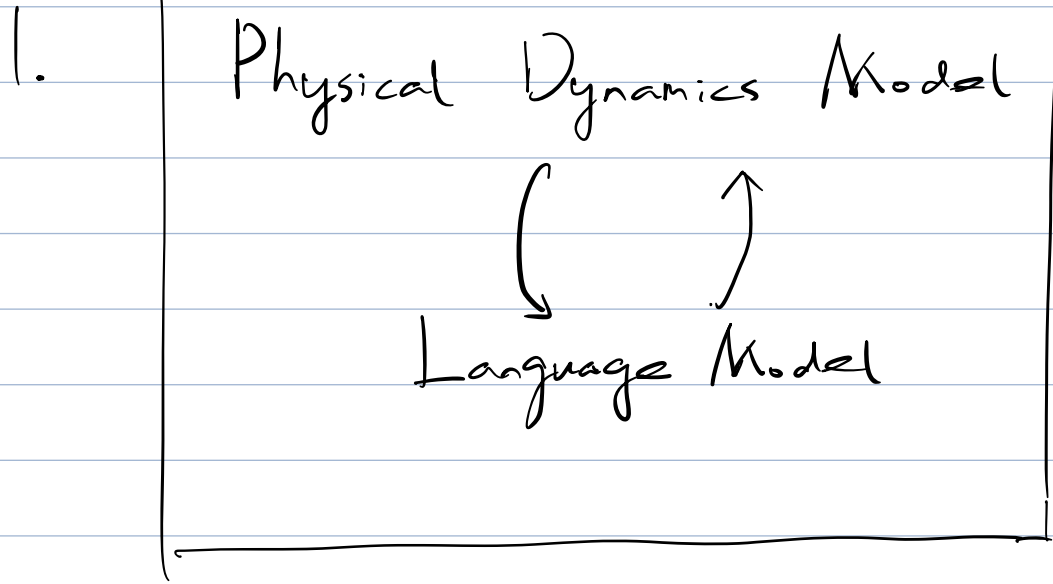 1.
Physical Dynamics Model
Language Model